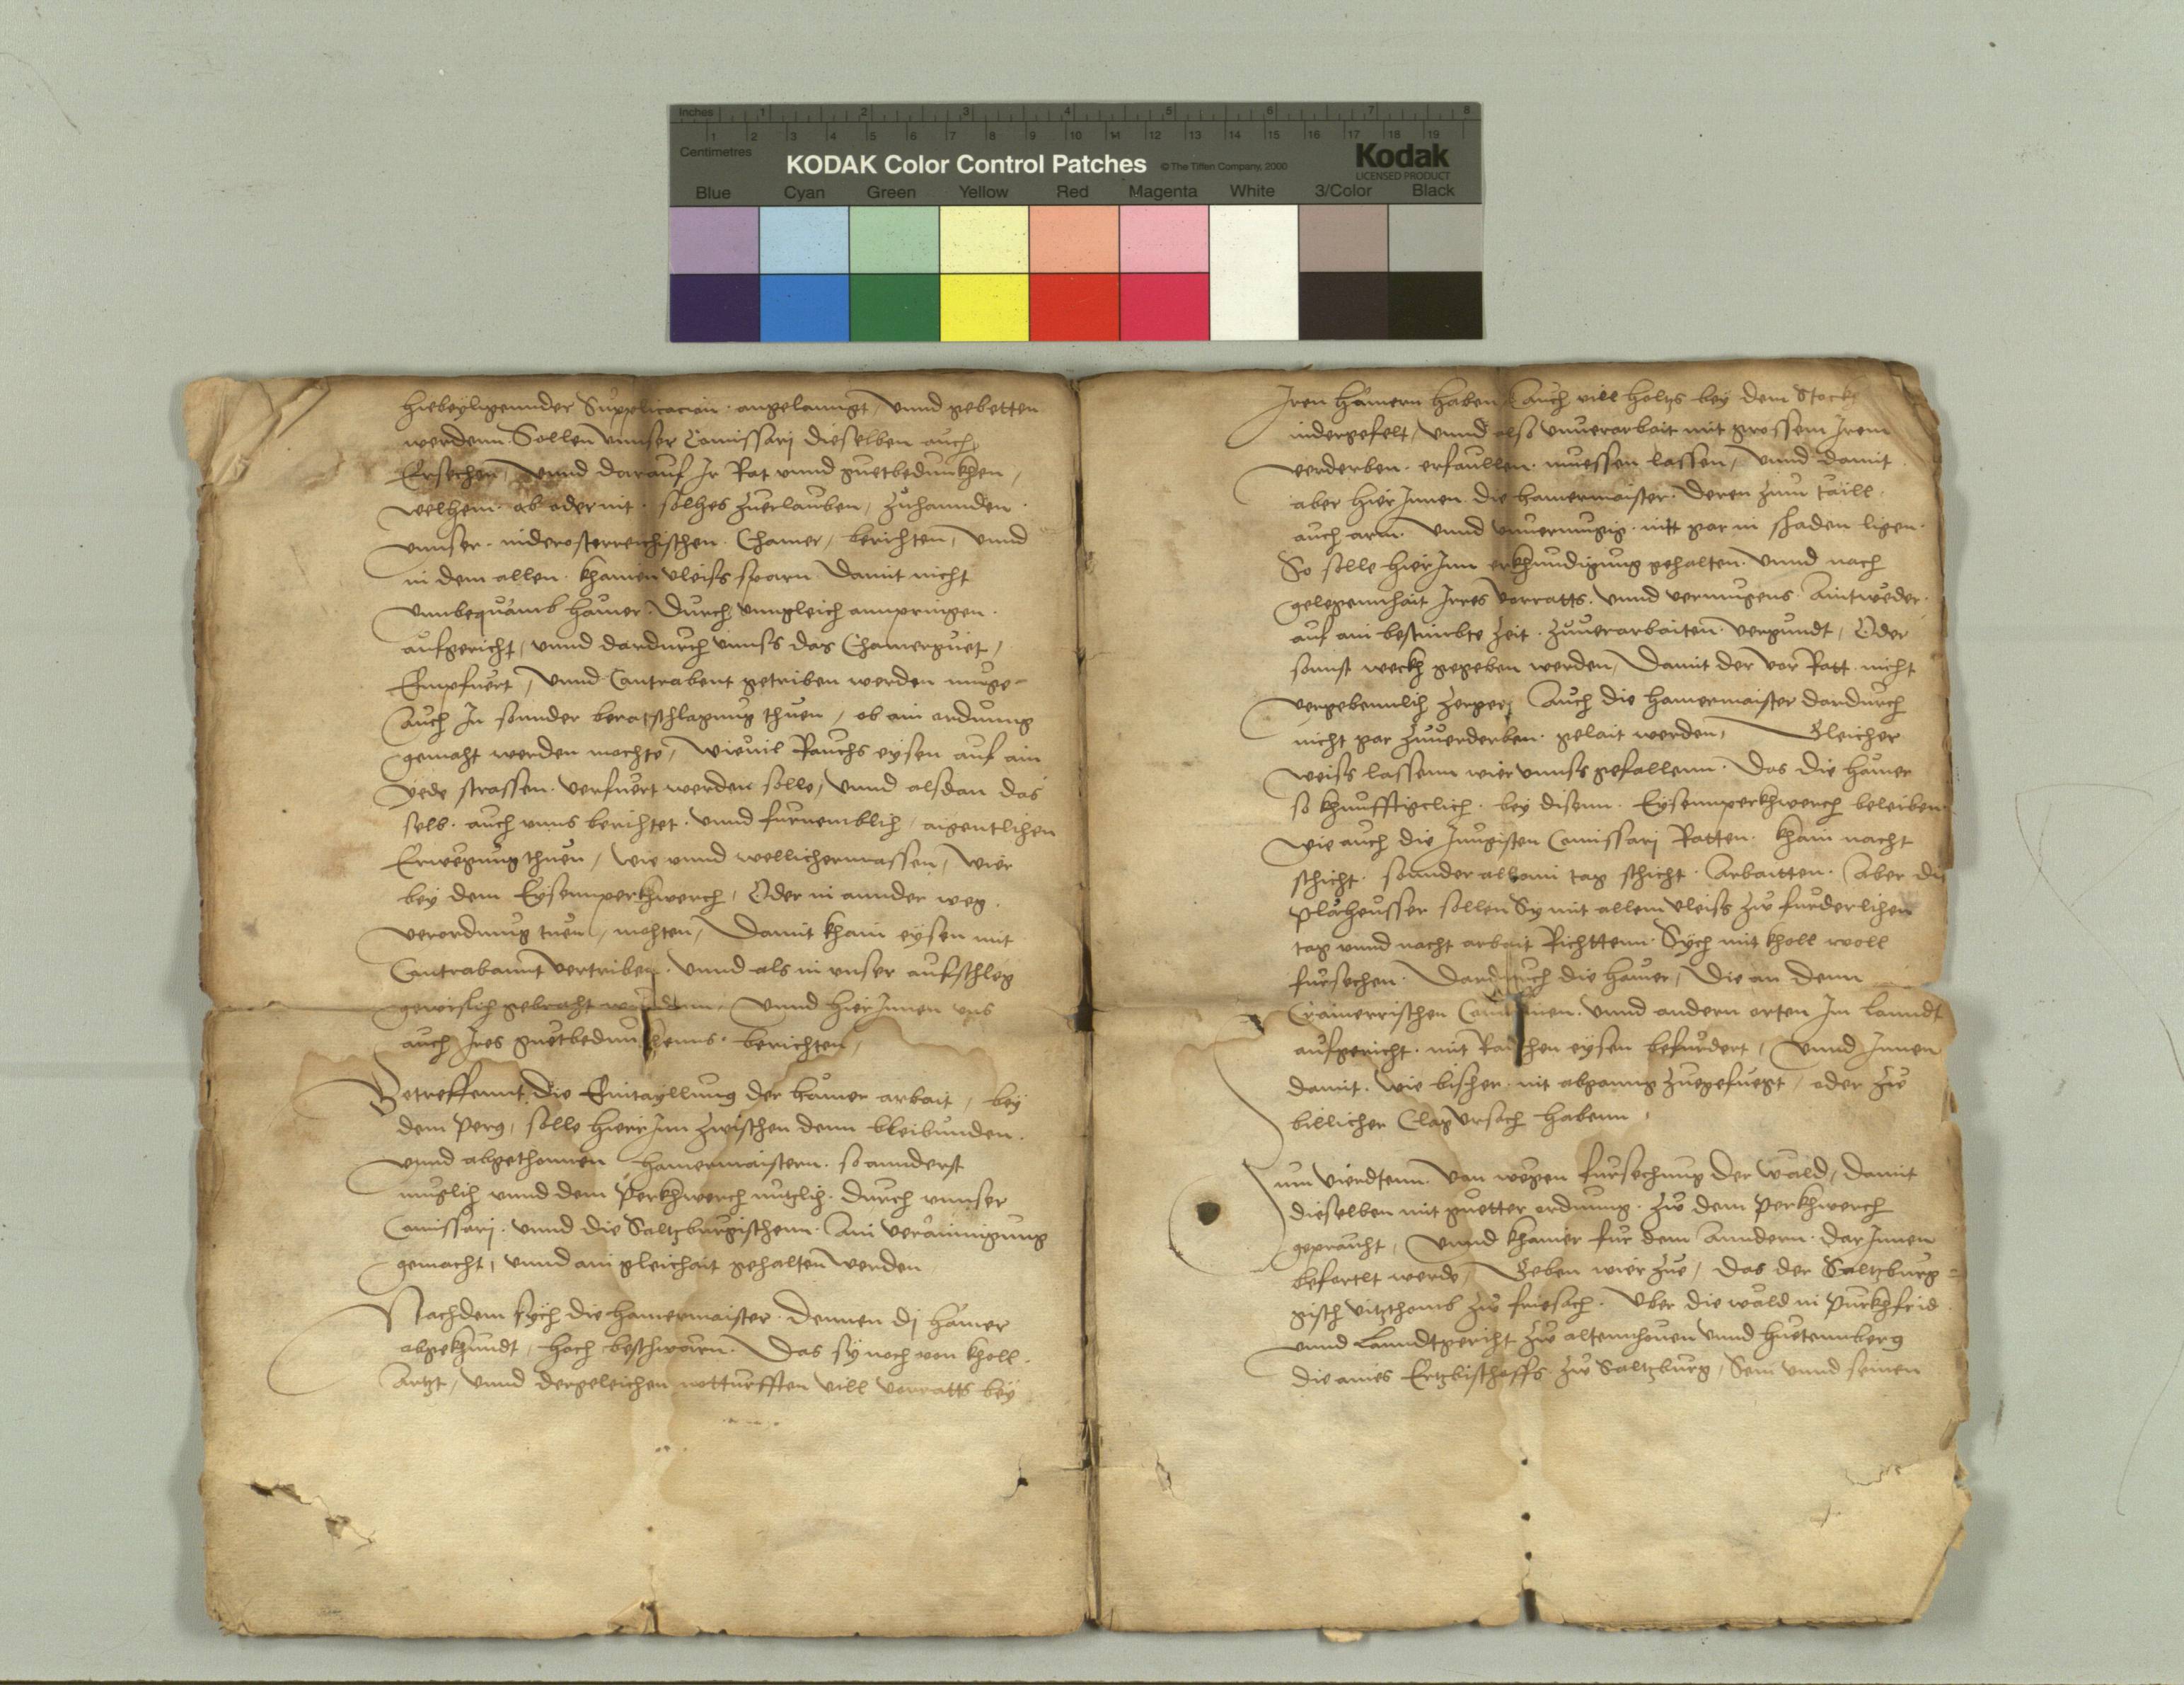 Inches 1 2 3 4 5 6 7 8
1 2 3 4 5 6 7 8 9 10 11 12 13 14 15 16 17 18 19
Centimetres
KODAK Color Control Patches ©The Tiffen Company, 2000 Kodak
LICENSED PRODUCT
Blue Cyan Green Yellow Red Magenta White 3/Color Black
hiebeyligennder Supplicacion angelanngt, vnnd gebetten
werdenn. Sollen vnnser Comissarj dieselben auch
Ersechen, vnnd darauf Ir Rat vnnd guetbedunkhen,
welhem ob oder nit solhes zuerlauben, zuhannden
vnnser niderosterreichischen Chamer, berichten, vnnd
in dem allen khainen vleiss sparn Damit nicht
vnnbequamb hamer Durch vngleich annpringen
aufgericht, vnnd dardurch vnnss das Chamerguet,
Empfuert, vnnd Contrabent getriben werden muge
Auch In sonnder beratschlagung thuen, ob ain ordnung
gemacht werden mochte, wieuil Rauchs eysen auf ain
yede strassen verfuert werden solle, vnnd alsdan das
selb auch vnns berichtet vnnd furnemblich aigentlichen
Erwegung thuen, wie vnnd wellichermassen, wier
bey dem Eysennperkhwerch, Oder in annder weg
verordnung tuen, mochten, Damit khain eysen mit
Contrabannt vertriben vnnd als in vnser aufschleg
gewislich gebracht, vnnd hier Innen vns
auch Ires guetbedunkhenns berichten,
Betreffennt die Eintayllung der hamer arbait, bey
dem Perg, solle hier Inn zwischen denn bleibunden
vnnd abgethonnen hamermaistern so annderst
muglich vnnd dem Perkhwerch nutzlich durch vnnser
Comissarj vnnd die Saltzburgischenn Ain verainigung
gemacht, vnnd ain gleichait gehalten werden
Nachdem sych die hamermaister dennen dj hamer
abgekhundt, hoch beschwarn Das sy noch von kholl
Artzt, vnnd dergeleichen notturfften vill vorratts bey
Iren hamern haben Auch vill holtz bey dem Stockh
nidergefelt, vnnd also vnuerarbait mit grossem Irem
verderben erfaullen muessen lassen, vnnd damit
aber hier Innen die hamermaister deren zum taill
auch arm vnnd vnuermugig nitt gar in schaden ligen
So solle hier Inn erkhundigung gehalten vnnd nach
gelegennhait Irres vorratts vnnd vermugens Aintweder
auf ain bestimbte zeit zuuerarbaiten vergundt, Oder
sonnst weckh gegeben werden, Damit der vor Ratt nicht
vergebennlich zergee Auch die hamermaister dardurch
nicht gar zuuerderben gelait werden, Gleicher
weiss lassenn wier vnnss gefallenn Das die hamer
so khunfftigclich bey disem Eysennperkhwerch beleiben
Wie auch die Jungsten Comissarj Ratten khain nacht
schicht sonnder allain tag schicht Arbaitten Aber die
Plaheusser sollen Sy mit allem vleiss zw furderlicher
tag vnnd nacht arbait Richttenn Sych mit kholl woll
fursechen Dardurch die hamer, die an denn
Crainerrischen vnnd andern orten Im lanndt
aufgericht mit Rauchen eysen befurdert, vnnd Innen
damit wie bisher nit abganng zuegefuegt, oder zw
billicher Clag vrsach habenn,
um vierdtenn Von wegen fursechung der wald, Damit
dieselben mit guetter ordnung zw dem Perkhwerch
gepraucht, vnnd khainer fur dem Anndern dar Innen
befortlt werde, Geben wier zue, das der Saltzburg=
gisch vitzthomb zw friesach Vber die wald in Purkhfrid
vnnd Lanndtgericht zw altenhouen vnnd huetennberg
die aines Ertzbischoffs zw Saltzburg, Sein vnnd seinen